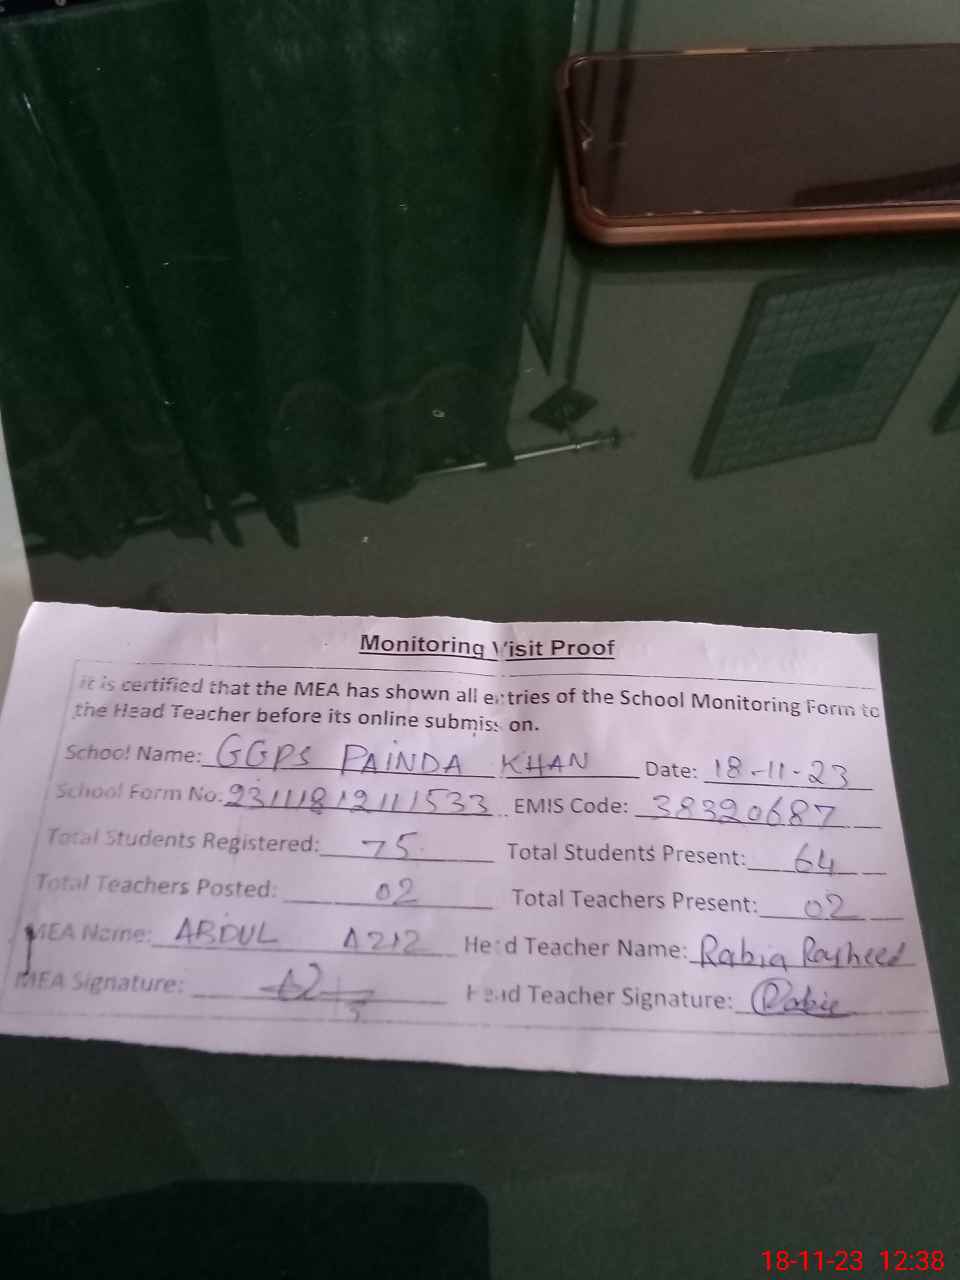 Monitoring Visit Proof
It is certified that the MEA has shown all entries of the School Monitoring Form to
the Head Teacher before its online submission.
School Name: GGPS PAINDA KHAN Date: 18-11-23
School Form No: 231118121111533 EMIS Code: 38320687
Total Students Registered: 75 Total Students Present: 64
Total Teachers Posted: 02 Total Teachers Present: 02
MEA Name: ABDUL AZIZ Head Teacher Name: Rabia Rasheed
MEA Signature: Head Teacher Signature: Rabie
18-11-23 12:38